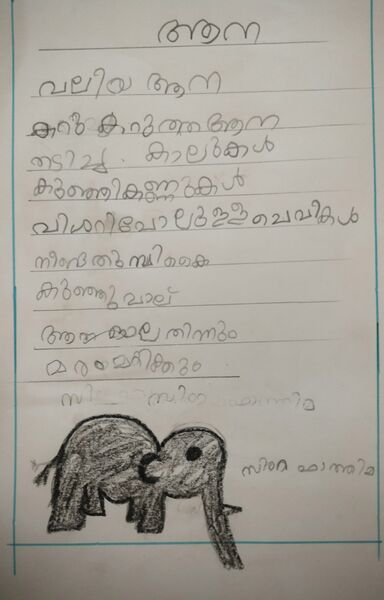 ആന
വലിയ ആന
കറു കറുത്ത ആന
തടിച്ച . കാലുകൾ
കുഞ്ഞികണ്ണുകൾ
വിശറിപോലുള്ള ചെവികൾ
നീണ്ട തുമ്പികൈ
കുഞ്ഞു വാല്
തിന്നും
മരംമറിക്കും .
ഫാത്തിമ